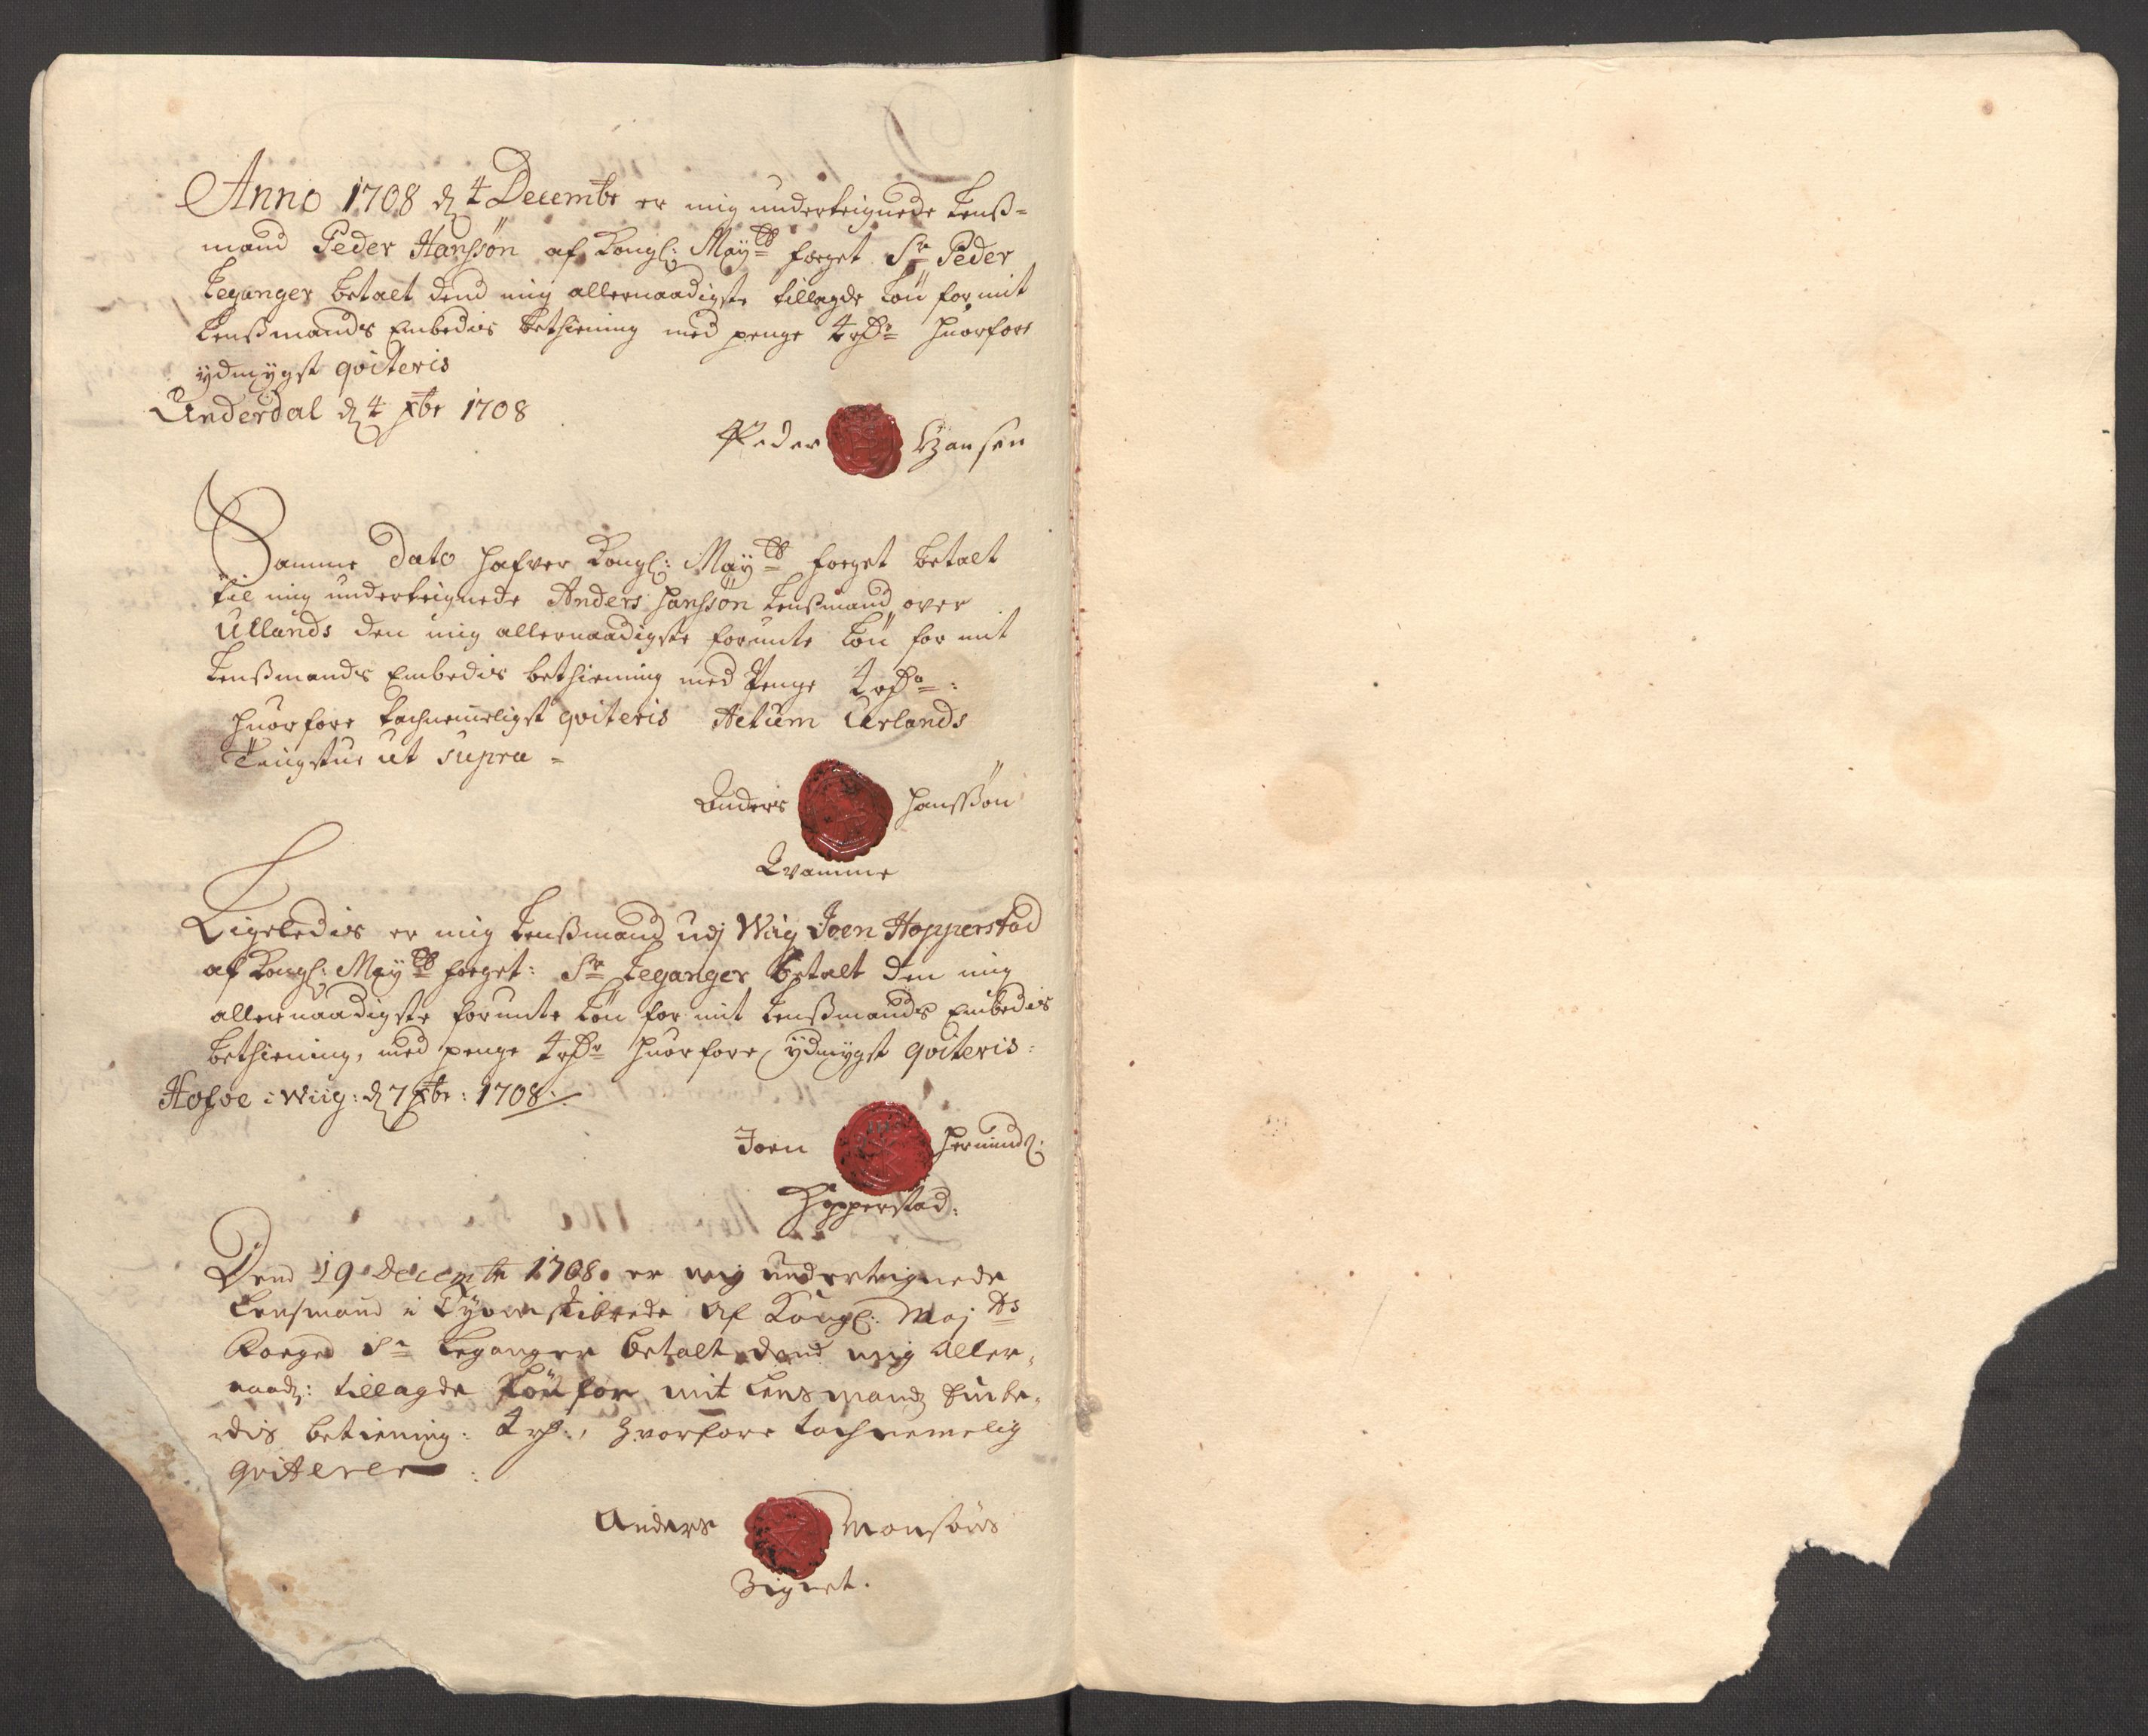 Anno 1708 d 4 Decembr er mig underteignede Lenß=
mand Peder Hanssön af Kongl: Mayts foeget Sr Peder
Leganger betalt dend mig allernaadigste tillagde Lön for mit
Lenßmands Embedis bethiening med penge 4 rdr huorfore
ydmygst qviteris
Underdal d 4 xbr 1708
Peder Hansen
Samme Dato hafver Kongl: Mayts foeget betalt
til mig underteignede Anders hanssön Lenßmand over
Urlands den mig allernaadigste forunte Lön for mit
Lenßmands Embedis bethiening med Penge 4 rdr:
huorfore tachnemeligst qviteris Actum Urlands
Tingstue ut supra =
Anders hansSön
Qvamme
Ligeledis er mig Lenßmand udj Wiig Joen Hopperstad
af Kongl: Mayts foeget: Sr Leganger betalt den mig
allernaadigste forunte Lön for mit Lenßmands Embedis
bethiening, med penge 4 rdr huorfore ydmygst qviteris:
Hofve i Wiig: d 7 xbr: 1708:/
Joen hermunds:
Hopperstad:
Dend 19 Decembr 1708. er mig underteignede
Lensmand i skibrede af Kongl: Maj ts
Foeged Sr Leganger betalt dend mig aller=
naad: tillagde Lön for mit Lens mands Embe=
dis betiening: 4 rdr:, hvorfore tachnemelig
qviterer:
Anders Monsöns
Zignet.